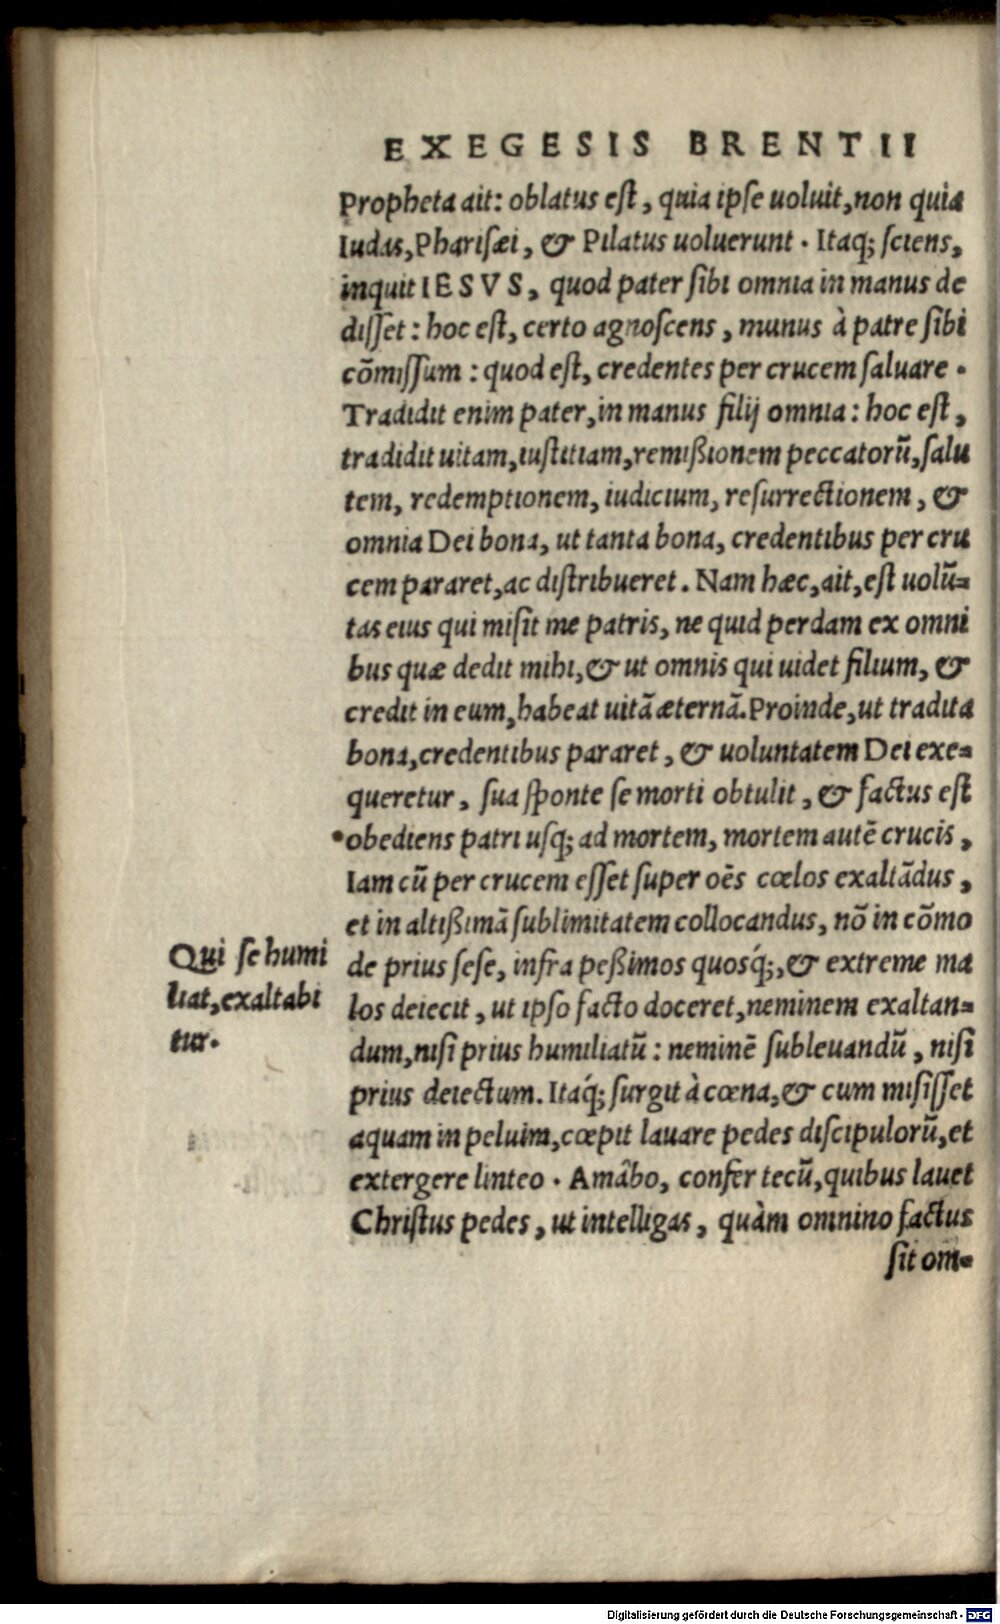 EXEGESIS BRENTII
Propheta ait: oblatus est, quia ipse uoluit, non quia
Iudas, Pharisæi, & Pilatus uoluerunt. Itaq; sciens,
inquit IESVS, quod pater sibi omnia in manus de
disset: hoc est, certo agnoscens, munus à patre sibi
cõmissum: quod est, credentes per crucem saluare.
Tradidit enim pater, in manus filij omnia: hoc est,
tradidit uitam, iustitiam, remißionem peccatorũ, salu
tem, redemptionem, iudicium, resurrectionem, &
omnia Dei bona, ut tanta bona, credentibus per cru
cem pararet, ac distribueret. Nam hæc, ait, est uolũ=
tas eius qui misit me patris, ne quid perdam ex omni
bus quæ dedit mihi, & ut omnis qui uidet filium, &
credit in eum, habeat uitã æternã. Proinde, ut tradita
bona, credentibus pararet, & uoluntatem Dei exe=
queretur, sua sponte se morti obtulit, & factus est
obediens patri usq; ad mortem, mortem autẽ crucis,
Iam cũ per crucem esset super oẽs cœlos exaltãdus,
et in altißimã sublimitatem collocandus, nõ in cõmo
Qui se humi
liat, exaltabi
tur.
de prius sese, infra peßimos quosq́;, & extreme ma
los deiecit, ut ipso facto doceret, neminem exaltan=
dum, nisi prius humiliatũ: neminẽ subleuandũ, nisi
prius deiectum. Itaq́; surgit à cœna, & cum misisset
aquam in peluim, cœpit lauare pedes discipulorũ, et
extergere linteo. Amâbo, confer tecũ, quibus lauet
Christus pedes, ut intelligas, quàm omnino factus
sit om=
Digitalisierung gefördert durch die Deutsche Forschungsgemeinschaft - DFG